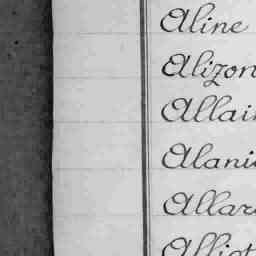 Aline
Alizon
Allain
Alanic
Allar
Alliot